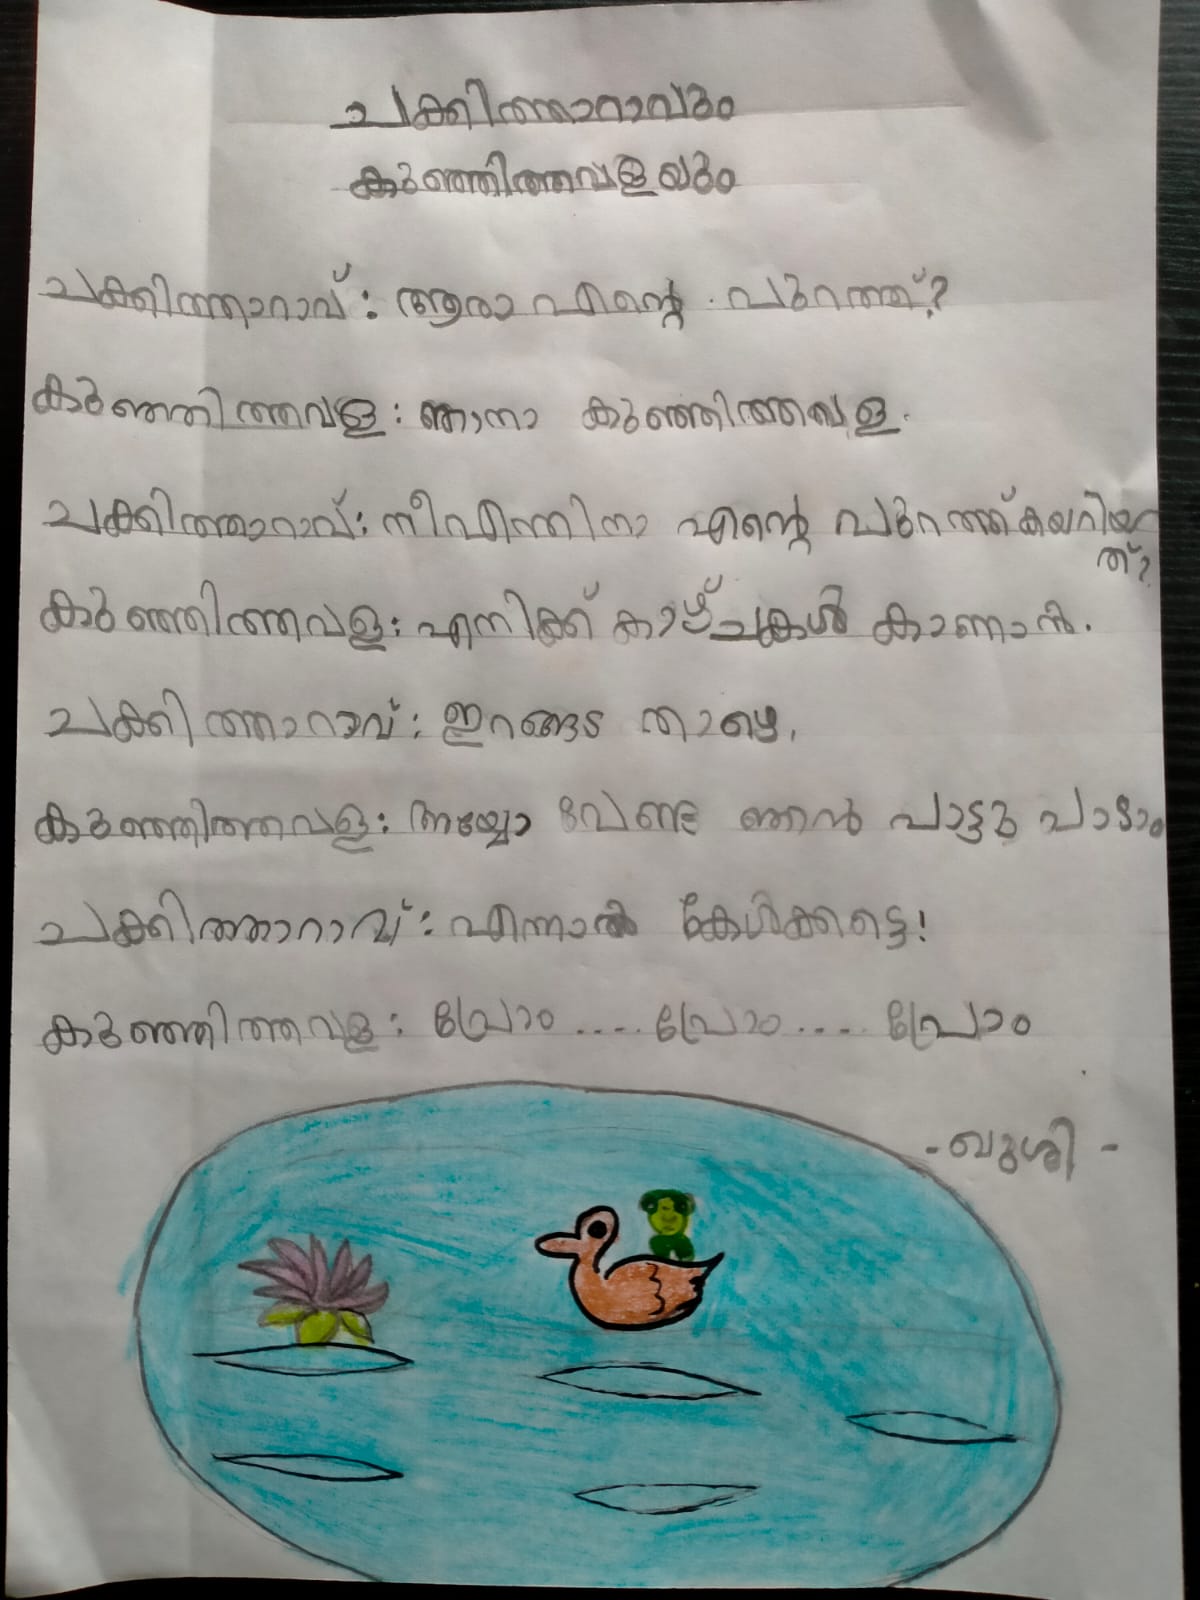 ചക്കിത്താറാവും
കുഞ്ഞിത്തവളയും
ചക്കിത്താറാവ്: ആരാ എന്റെ പുറത്ത്?
കുഞ്ഞിത്തവള: ഞാനാ കുഞ്ഞിത്തവള.
ചക്കിത്താറാവ്: നീഎന്തിനാ എന്റെ പുറത്ത്കയറിയ
ത്?
കുഞ്ഞിത്തവള: എനിക്ക് കാഴ്ചകൾ കാണാൻ.
ചക്കിത്താറാവ്: ഇറങ്ങട താഴെ.
കുഞ്ഞിത്തവള: അയ്യോ വേണ്ട ഞൻ പാട്ടു പാടാം
ചക്കിത്താറാവ്: എന്നാൽ കേൾക്കട്ടെ!
കുഞ്ഞിത്തവള: പ്രോം .... പ്രോം .... പ്രോം
-ഖുശി -